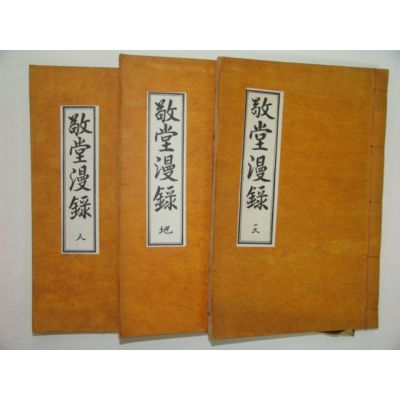 敬堂漫錄
人
敬堂漫錄
地
敬堂漫錄
天